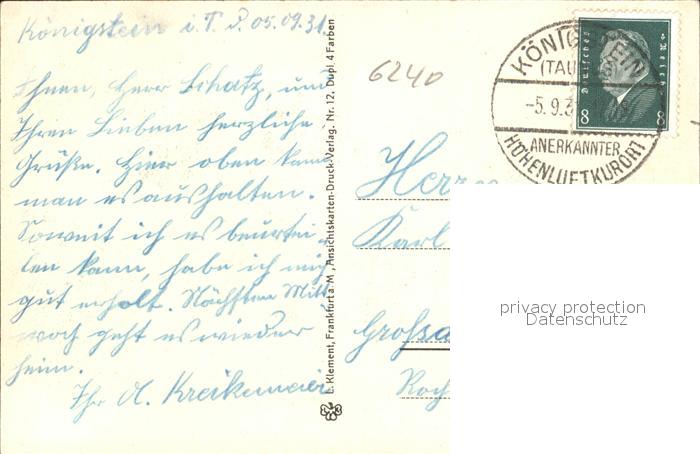 Königstein i. T. d. 05.09.31.
Ihnen, Herr Schatz, und
Ihren Lieben herzliche
Grüße. Hier oben kann
man es aushalten.
Soweit ich es beurtei-
len kann, habe ich mich
gut erholt. Nächsten Mitt-
woch geht es wieder
heim.
Ihr A.
L. Klement, Frankfurt a. M., Ansichtskarten-Druck-Verlag. Nr. 12, Dupl. 4 Farben
6240
KÖNIGSTEIN
(TAU
-5.9.3
ANERKANNTER
HÖHENLUFTKURORT
Deutsches Reich
8 8
Herrn
Karl
privacy protection
Datenschutz